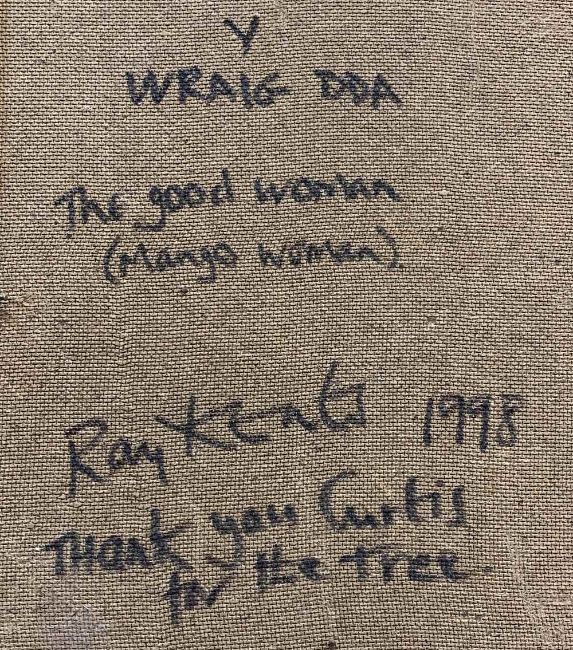 Y
WRAIG DDA
The good woman
(Mango woman)
Ray 1998
Thank you Curtis
for the tree.